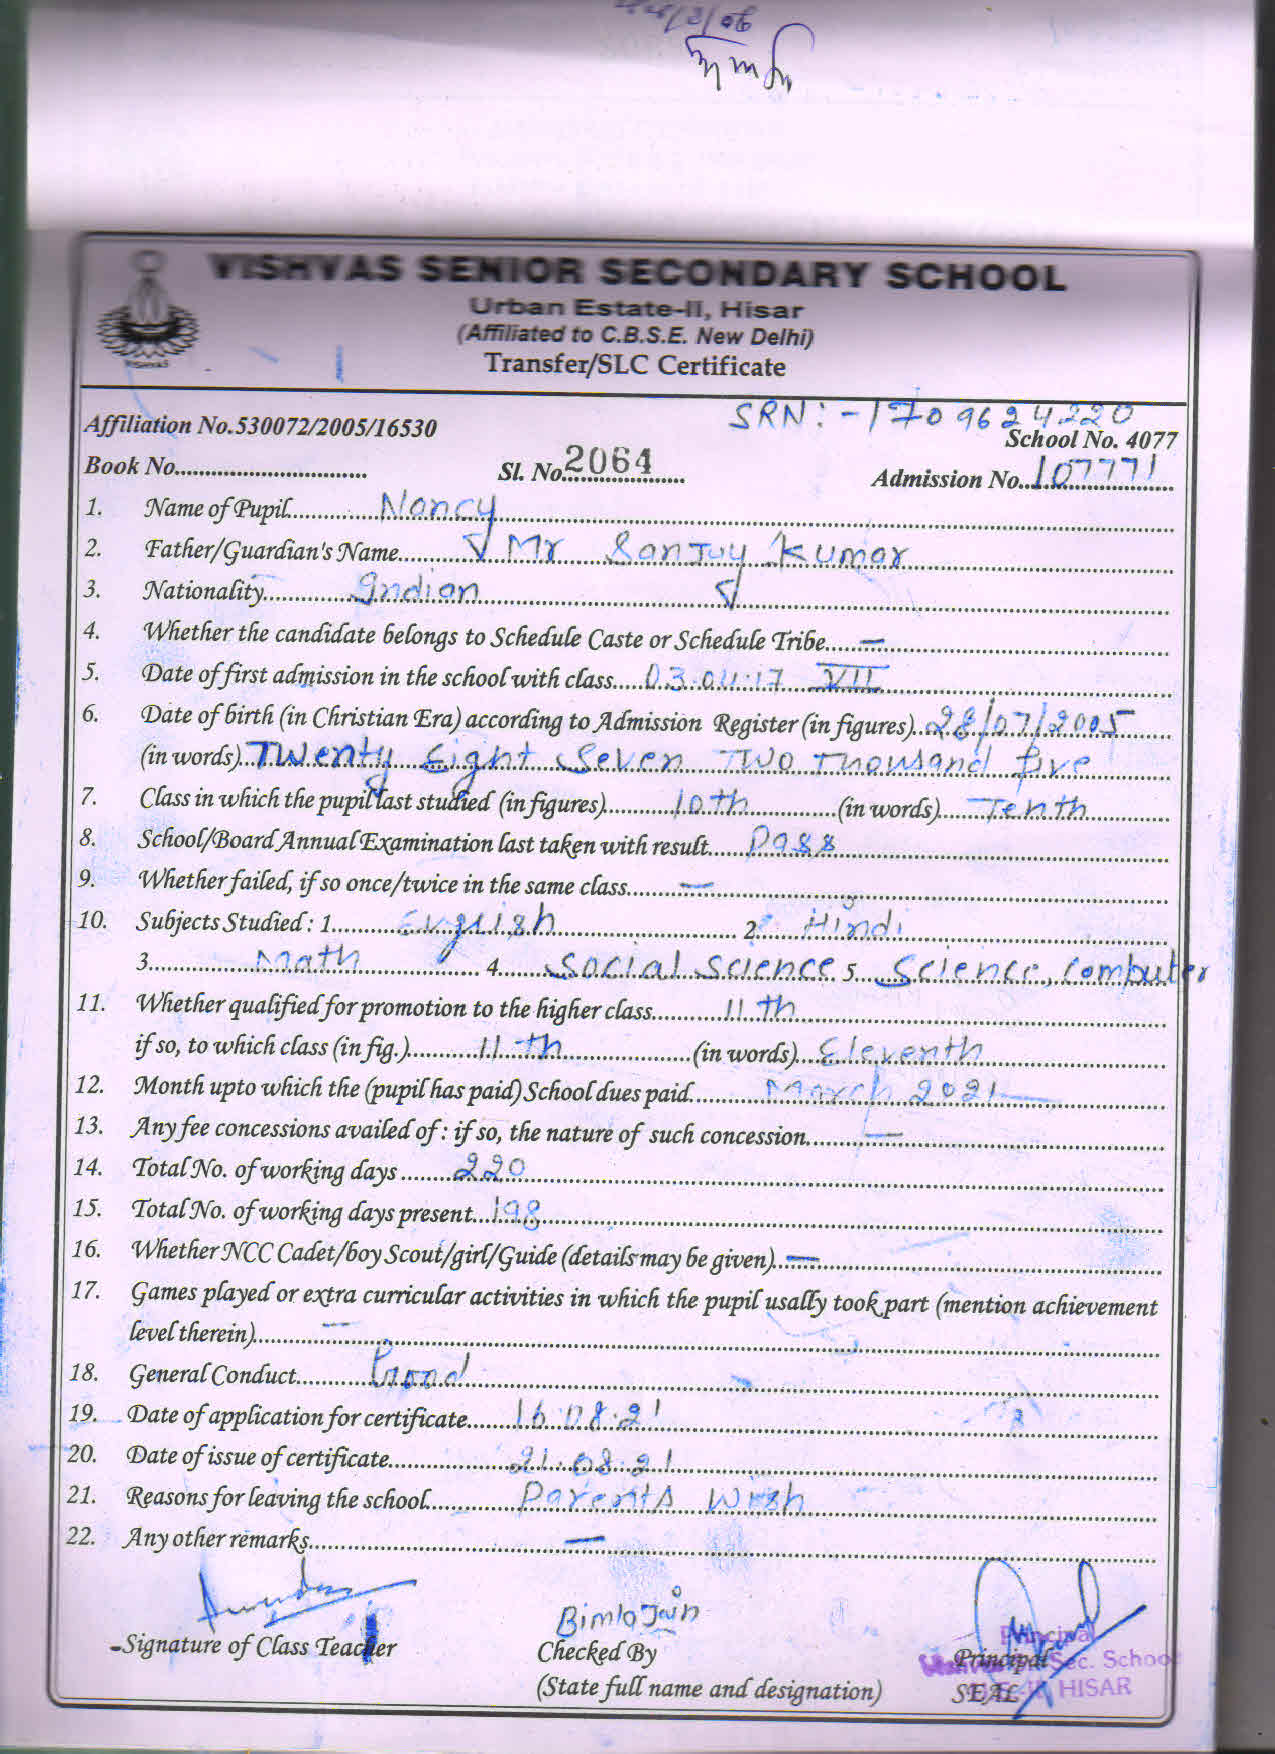 VISHVAS SENIOR SECONDARY SCHOOL
Urban Estate-II, Hisar
(Affiliated to C.B.S.E. New Delhi)
Transfer/SLC Certificate
VISHVAS
SRN:-1709624220
Affiliation No.530072/2005/16530 School No. 4077
Book No. Sl. No. 2064 Admission No. 107771
1. Name of Pupil Nancy
2. Father/Guardian's Name Mr Sanjay Kumar
3. Nationality Indian
4. Whether the candidate belongs to Schedule Caste or Schedule Tribe —
5. Date of first admission in the school with class 03.04.17 VII
6. Date of birth (in Christian Era) according to Admission Register (in figures) 28/07/2005
(in words) Twenty Eight Seven Two Thousand five
7. Class in which the pupil last studied (in figures) 10th (in words) Tenth
8. School/Board Annual Examination last taken with result Pass
9. Whether failed, if so once/twice in the same class —
10. Subjects Studied : 1. English 2. Hindi
3. Math 4. Social Science 5. Science, Computer
11. Whether qualified for promotion to the higher class 11th
if so, to which class (in fig.) 11th (in words) Eleventh
12. Month upto which the (pupil has paid) School dues paid March 2021
13. Any fee concessions availed of : if so, the nature of such concession —
14. Total No. of working days 220
15. Total No. of working days present 198
16. Whether NCC Cadet/boy Scout/girl/Guide (details may be given) —
17. Games played or extra curricular activities in which the pupil usally took part (mention achievement
level therein) —
18. General Conduct Good
19. Date of application for certificate 16.08.21
20. Date of issue of certificate 21.08.21
21. Reasons for leaving the school Parents Wish
22. Any other remarks —
Bimla Jain
Signature of Class Teacher Checked By Principal
(State full name and designation) SEAL
Principal
Sec. School
HISAR